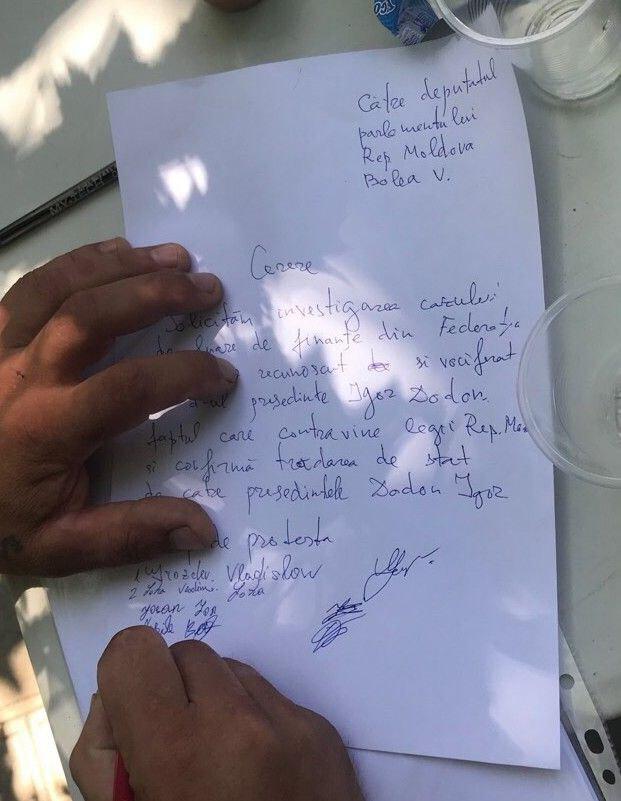 Către deputatul
parlamentului
Rep Moldova
Bolea V.
Cerere
Solicităm investigarea cazului
de finanțe din Federația
recunoscut si vociferat
presedinte Igor Dodon.
faptul care contravine legii Rep. Mo
si confirmă trădarea de stat
de catre presedintele Dodon Igor
de protesta
1 Vladislav
2
Ion